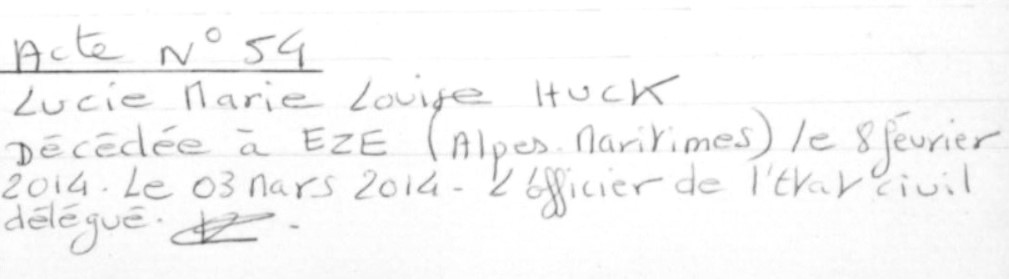 Acte N° 54
Lucie Marie Louise HUCK
Décédée à EZE (Alpes-Maritimes) le 8 février
2014. Le 03 Mars 2014 - L'officier de l'état civil
délégué.